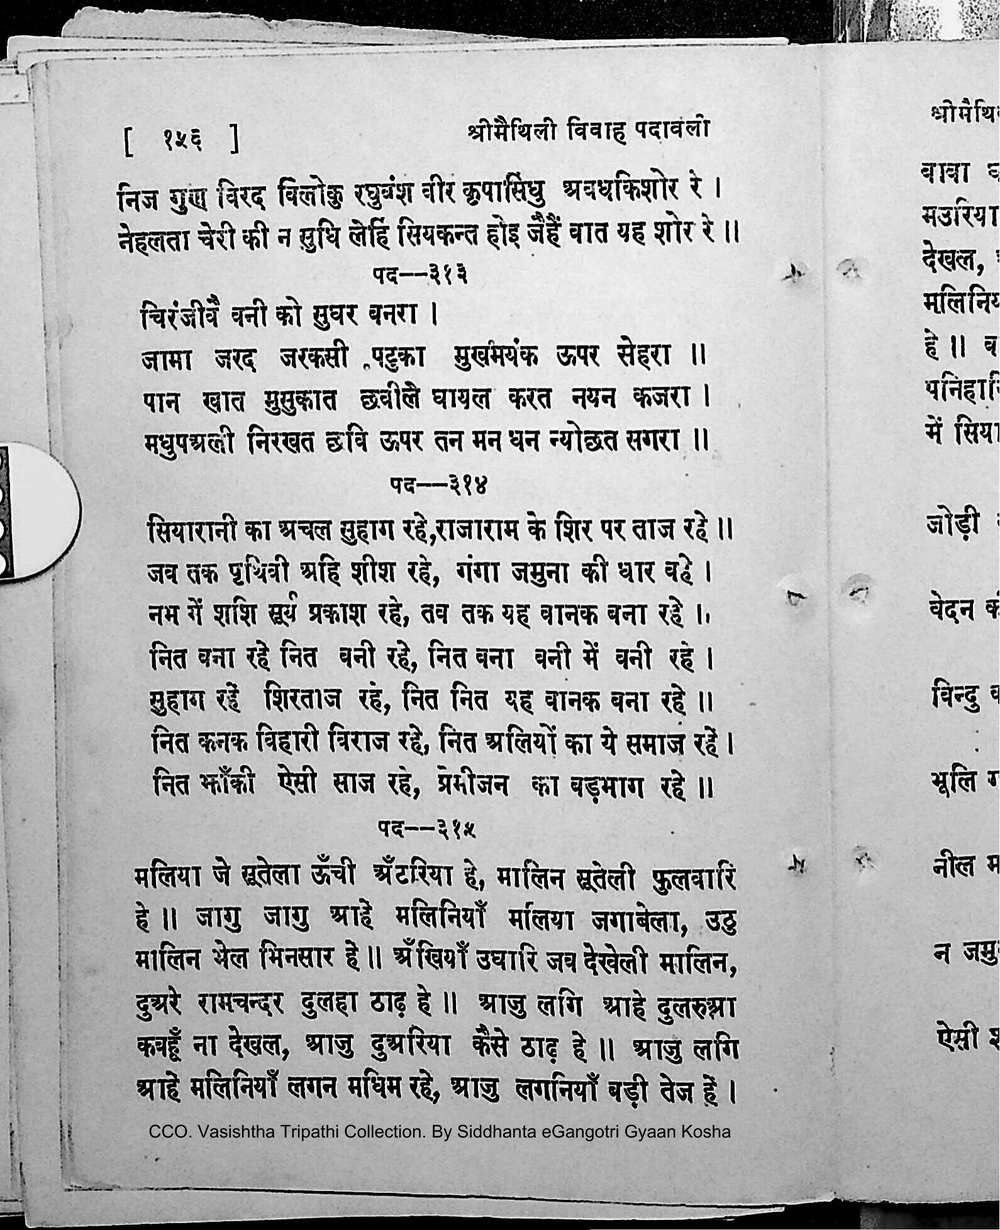 [ १५६ ] श्रीमैथिली विवाह पदावली
निज गुण विरद विलोकु रघुवंश वीर कृपासिंधु अवधकिशोर रे ।
नेहलता चेरी की न सुधि लेहिं सियकन्त होइ जैहैं बात यह शोर रे ॥
पद—३१३
चिरंजीवै बनी को सुघर बनरा ।
जामा जरद जरकसी पटुका मुखमयंक ऊपर सेहरा ॥
पान खात मुसुकात छबीलै घायल करत नयन कजरा ।
मधुपअली निरखत छवि ऊपर तन मन धन न्योछत सगरा ॥
पद—३१४
सियारानी का अचल सुहाग रहे, राजाराम के शिर पर ताज रहे ॥
जब तक पृथिवी अहि शीश रहे, गंगा जमुना की धार बहे ।
नभ में शशि सूर्य प्रकाश रहे, तब तक यह बानक बना रहे ॥
नित बना रहें नित बनी रहे, नित बना बनी में बनी रहे ।
सुहाग रहें शिरताज रहे, नित नित यह बानक बना रहे ॥
नित कनक विहारी विराज रहे, नित अलियों का ये समाज रहें ।
नित झाँकी ऐसी साज रहे, प्रेमीजन का बड़भाग रहे ॥
पद—३१५
मलिया जे सूतेला ऊँची अँटरिया हे, मालिन सूतेली फुलवारि
हे ॥ जागु जागु आहे मलिनियाँ मलिया जगाबेला, उठु
मालिन भेल भिनसार हे ॥ अँखियाँ उघारि जब देखेली मालिन,
दुअरे रामचन्दर दुलहा ठाढ़ हे ॥ आजु लगि आहे दुलरुआ
कबहूँ ना देखल, आजु दुअरिया कैसे ठाढ़ हे ॥ आजु लगि
आहे मलिनियाँ लगन मधिम रहे, आजु लगनियाँ बड़ी तेज हें ।
CCO. Vasishtha Tripathi Collection. By Siddhanta eGangotri Gyaan Kosha
श्रीमैथि
बाबा
मउरिया
देखल,
मलिनिय
हे ॥ व
पनिहारि
में सिया
जोड़ी
वेदन
विन्दु
भूलि
नील
न जमु
ऐसी